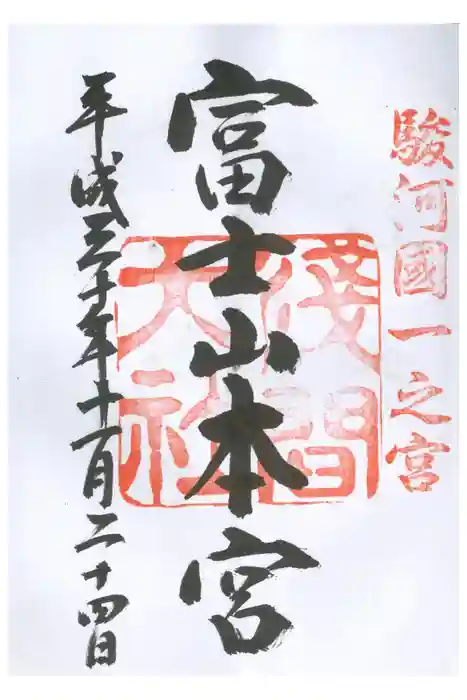 駿河國一之宮
富士山本宮
淺間大社
平成三十年十一月二十四日